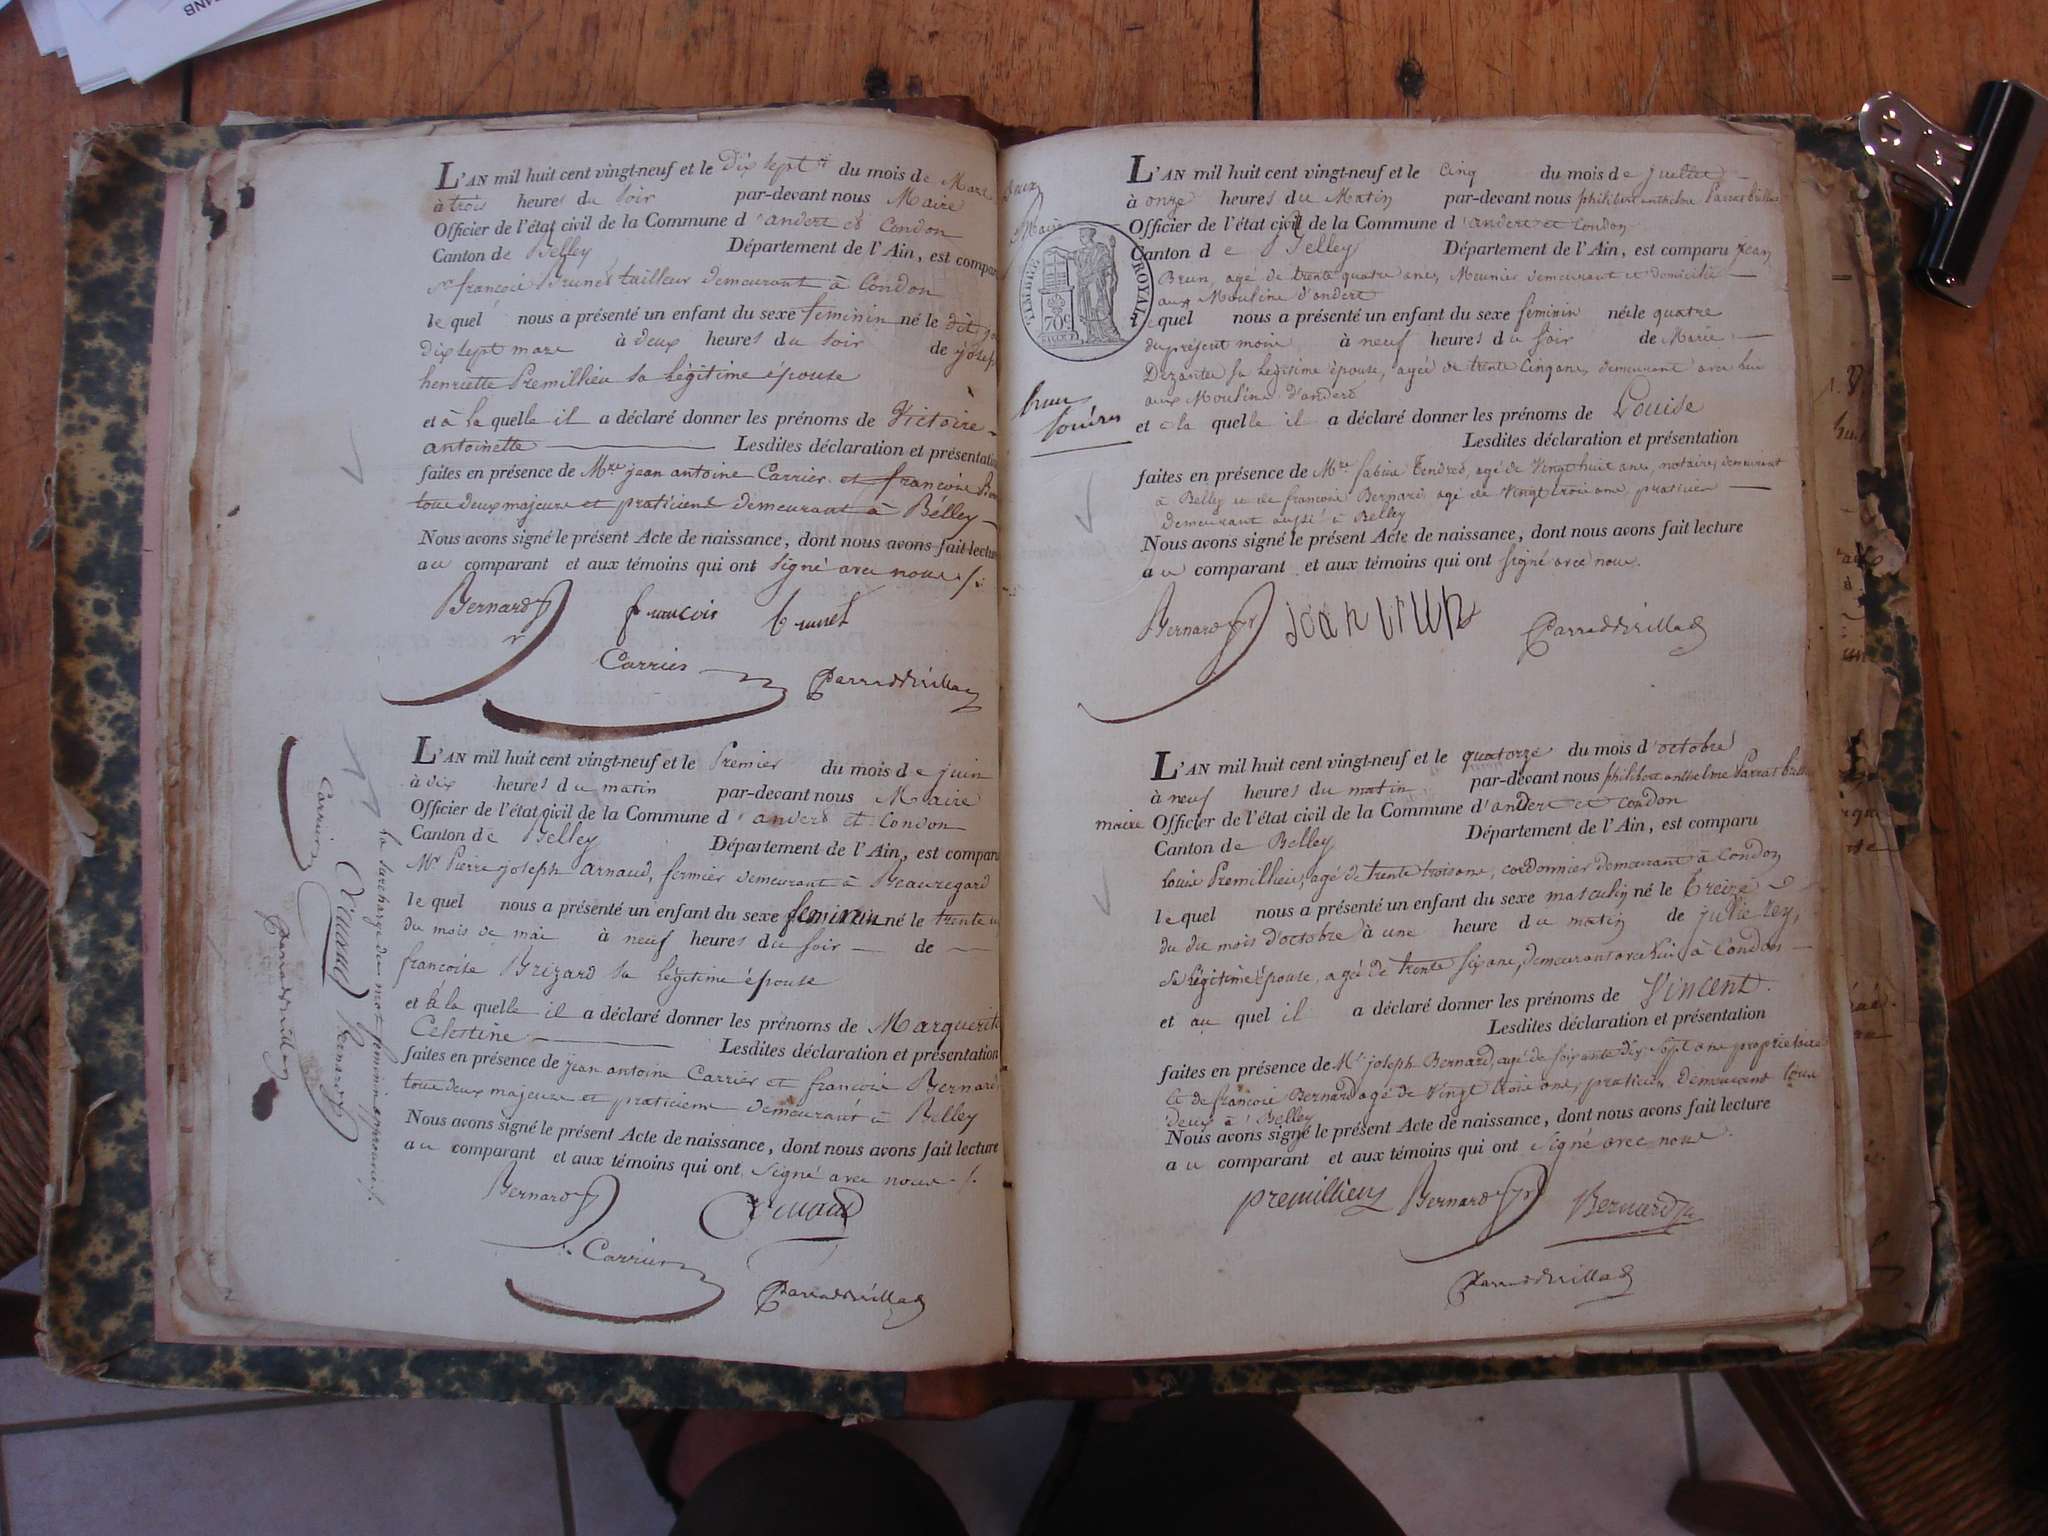 L'AN mil huit cent vingt-neuf et le Dix sept du mois de Mars
à trois heures du soir par-devant nous Maire
Officier de l'état civil de la Commune d'andert et Condon
Canton de Belley Département de l'Ain, est compar
françois Brunet tailleur demeurant à Condon
le quel nous a présenté un enfant du sexe feminin né le dit jo
dix sept mars à deux heures du soir de josep
henriette Premillieu sa légitime épouse
et à la quelle il a déclaré donner les prénoms de Victoire
antoinette Lesdites déclaration et présentation
faites en présence de Mre jean antoine Carrier et françois Ber
tous deux majeurs et praticiens demeurant à Bélley
Nous avons signé le présent Acte de naissance, dont nous avons fait lecture
au comparant et aux témoins qui ont signé avec nous
Bernard françois brunet
Carrier Parradbrillat
L'AN mil huit cent vingt-neuf et le Premier du mois de juin
à dix heures du matin par-devant nous Maire
Officier de l'état civil de la Commune d'andert et Condon
Canton de Belley Département de l'Ain, est comparu
Mr Pierre joseph arnaud, fermier demeurant à Beauregard
le quel nous a présenté un enfant du sexe feminin né le trente u
du mois de mai à neuf heures du soir de
françoise Brizard sa légitime épouse
et à la quelle il a déclaré donner les prénoms de Marguerite
Celestine Lesdites déclaration et présentation
faites en présence de jean antoine Carrier et françois Bernard
tous deux majeurs et praticiens demeurant à Belley
Nous avons signé le présent Acte de naissance, dont nous avons fait lecture
au comparant et aux témoins qui ont signé avec nous
Bernard Arnaud
Carrier
Parradbrillat
la surcharge du mot feminin approuvée
Arnaud Bernard
Carrier
Parradbrillat
L'AN mil huit cent vingt-neuf et le cinq du mois de juillet
à onze heures du Matin par-devant nous philibert anthelme Parrat brillat
Maire Officier de l'état civil de la Commune d'andert et condon
Canton de Belley Département de l'Ain, est comparu jean
Brun, agé de trente quatre ans, Meunier demeurant et domicilié
aux Moulins d'andert
le quel nous a présenté un enfant du sexe feminin née le quatre
du présent mois à neuf heures du soir de Marie
Dezanter sa légitime épouse, agée de trente cinq ans, demeurant avec lui
aux Moulins d'andert
et à la quelle il a déclaré donner les prénoms de Louise
Lesdites déclaration et présentation
faites en présence de Mre sabin Tendret, agé de Vingt huit ans, notaire, demeurant
à Belley et de françois Bernard agé de Vingt trois ans praticien
demeurant aussi à Belley
Nous avons signé le présent Acte de naissance, dont nous avons fait lecture
au comparant et aux témoins qui ont signé avec nous.
Bernard jean brun Parradbrillat
TIMBRE ROYAL
70c
brun
louise
L'AN mil huit cent vingt-neuf et le quatorze du mois d'octobre
à neuf heures du matin par-devant nous philibert anthelme Parrat brillat
maire Officier de l'état civil de la Commune d'andert et condon
Canton de Belley Département de l'Ain, est comparu
louis Premillieu, agé de trente trois ans, cordonnier demeurant à Condon
le quel nous a présenté un enfant du sexe masculin né le treize
du du mois d'octobre à une heure du matin de julie Rey,
sa légitime épouse, agée de trente six ans, demeurant avec lui à Condon
et au quel il a déclaré donner les prénoms de Vincent.
Lesdites déclaration et présentation
faites en présence de Mr joseph Bernard, agé de soixante dix sept ans propriétaire
et de françois Bernard agé de Vingt trois ans, praticien demeurant tous
deux à Belley
Nous avons signé le présent Acte de naissance, dont nous avons fait lecture
au comparant et aux témoins qui ont signé avec nous.
premillieux Bernard Bernard
Parradbrillat